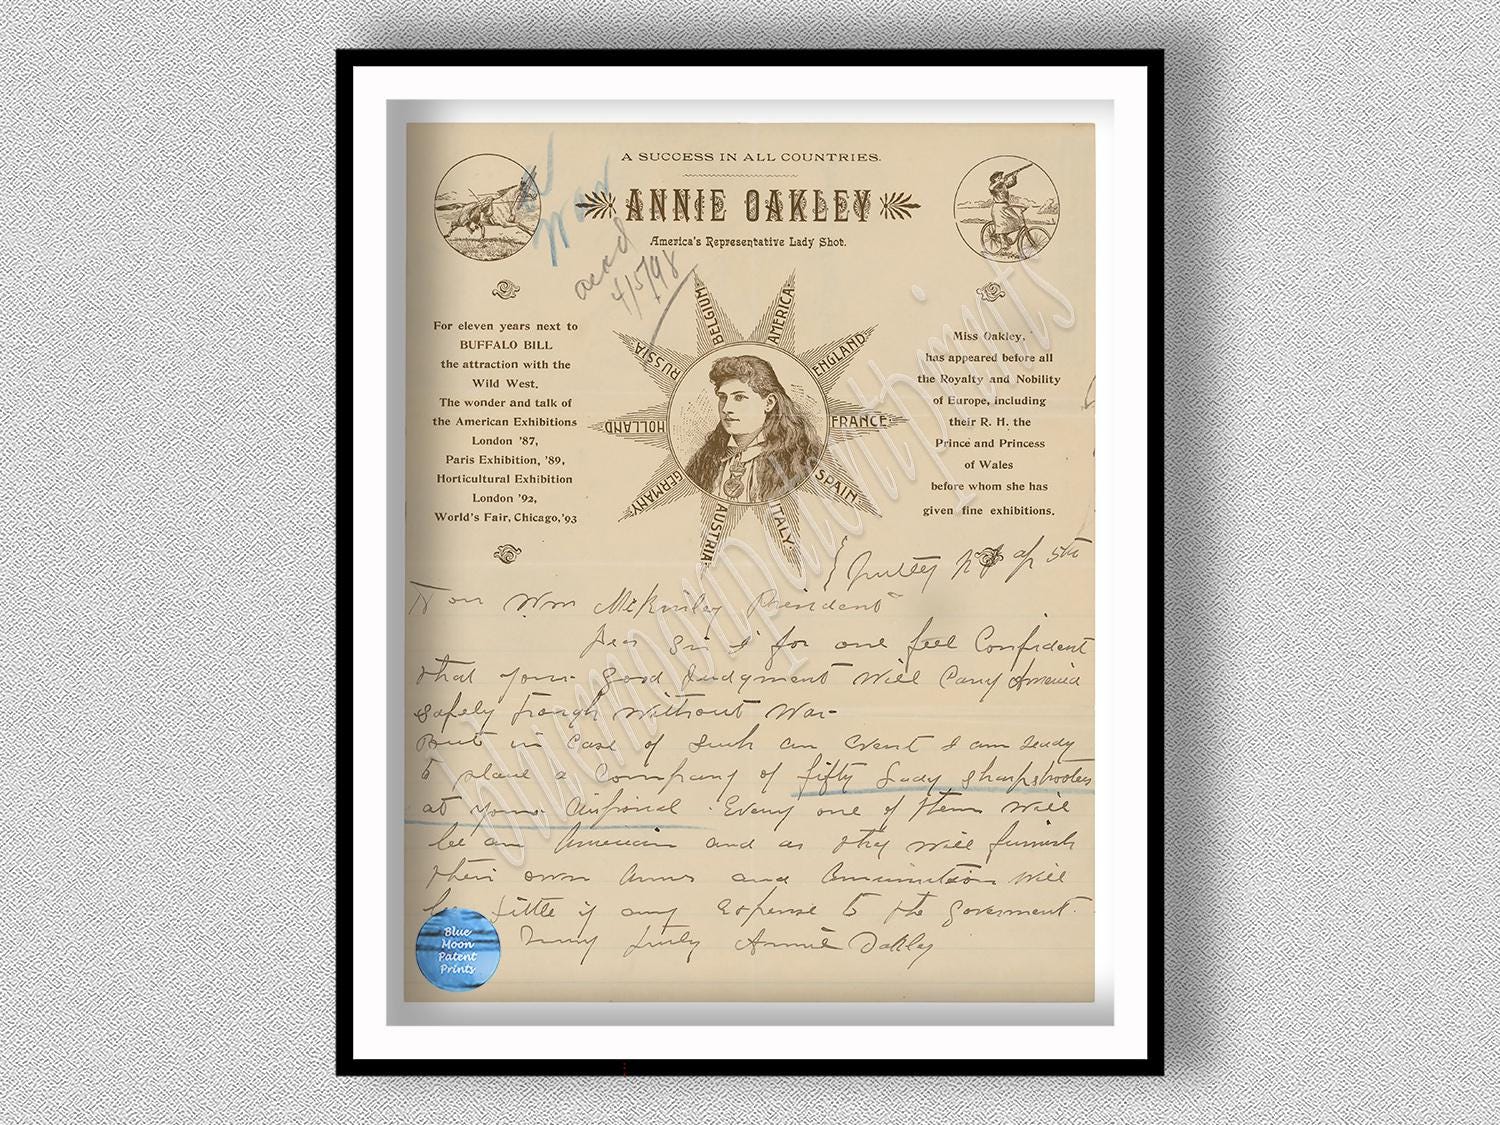 A SUCCESS IN ALL COUNTRIES.
ANNIE OAKLEY
America's Representative Lady Shot.
W
War
ackd
4/5/98
For eleven years next to
BUFFALO BILL
the attraction with the
Wild West.
The wonder and talk of
the American Exhibitions
London '87,
Paris Exhibition, '89,
Horticultural Exhibition
London '92,
World's Fair, Chicago, '93
AMERICA
ENGLAND
FRANCE
SPAIN
ITALY
AUSTRIA
GERMANY
HOLLAND
RUSSIA
BELGIUM
Miss Oakley,
has appeared before all
the Royalty and Nobility
of Europe, including
their R. H. the
Prince and Princess
of Wales
before whom she has
given fine exhibitions.
Nutley NJ ap 5th
Hon Wm McKinley President
Dear Sir I for one feel Confident
that your good judgment will carry America
safely through without War-
But in case of such an event I am ready
to place a Company of fifty Lady sharpshooters
at your disposal. Every one of them will
be an American and as they will furnish
their own Arms and Ammunition will
be little if any expense to the Government.
Very Truly Annie Oakley
bluemoonpatentprints
Blue
Moon
Patent
Prints